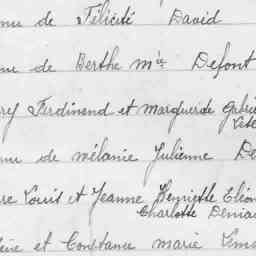 nu de Félicité David
nu de Berthe Mie Defont
Ferdinand et marguerite Gabri
nu de mélanie Julienne De
re Louis et Jeanne Henriette Eléon
Charlotte Deniau
et Constance marie